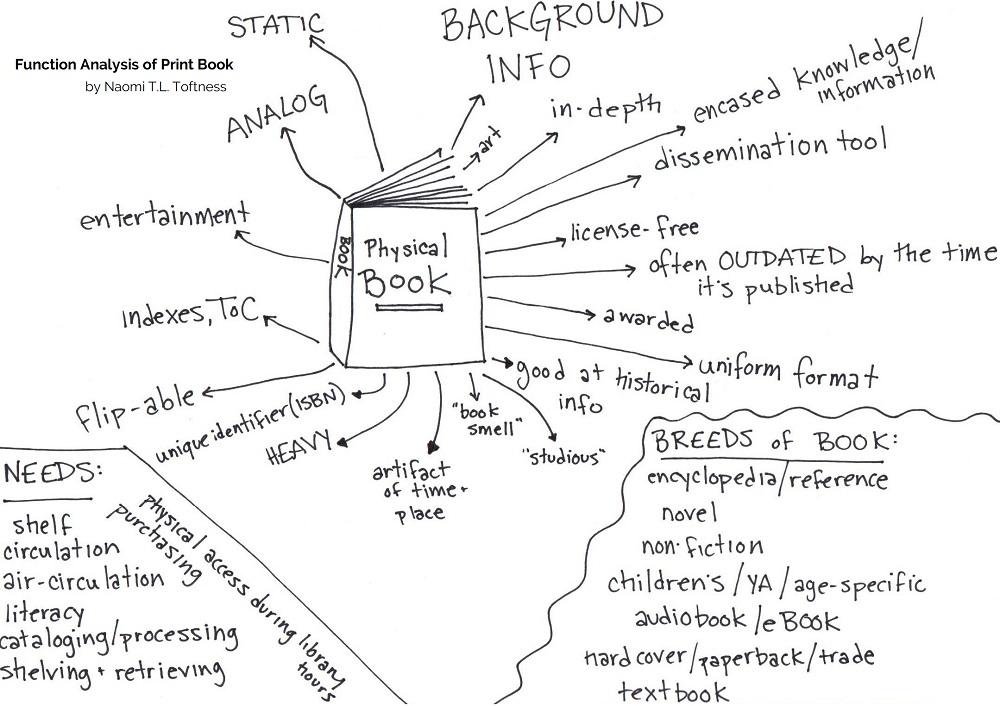 Function Analysis of Print Book
by Naomi T.L. Toftness
STATIC
BACKGROUND
INFO
ANALOG
art
in-depth
encased knowledge/
information
dissemination tool
entertainment
license-free
BOOK
Physical
BOOK
often OUTDATED by the time
it's published
indexes, ToC
awarded
uniform format
good at historical
info
flip-able
unique identifier (ISBN)
HEAVY
artifact
of time +
place
"book
smell"
"studious"
NEEDS:
shelf
circulation
air-circulation
literacy
cataloging/processing
shelving + retrieving
purchasing
Physical access during library
hours
BREEDS of BOOK:
encyclopedia/reference
novel
non-fiction
children's / YA / age-specific
audiobook / eBOOK
hardcover/paperback/trade
textbook